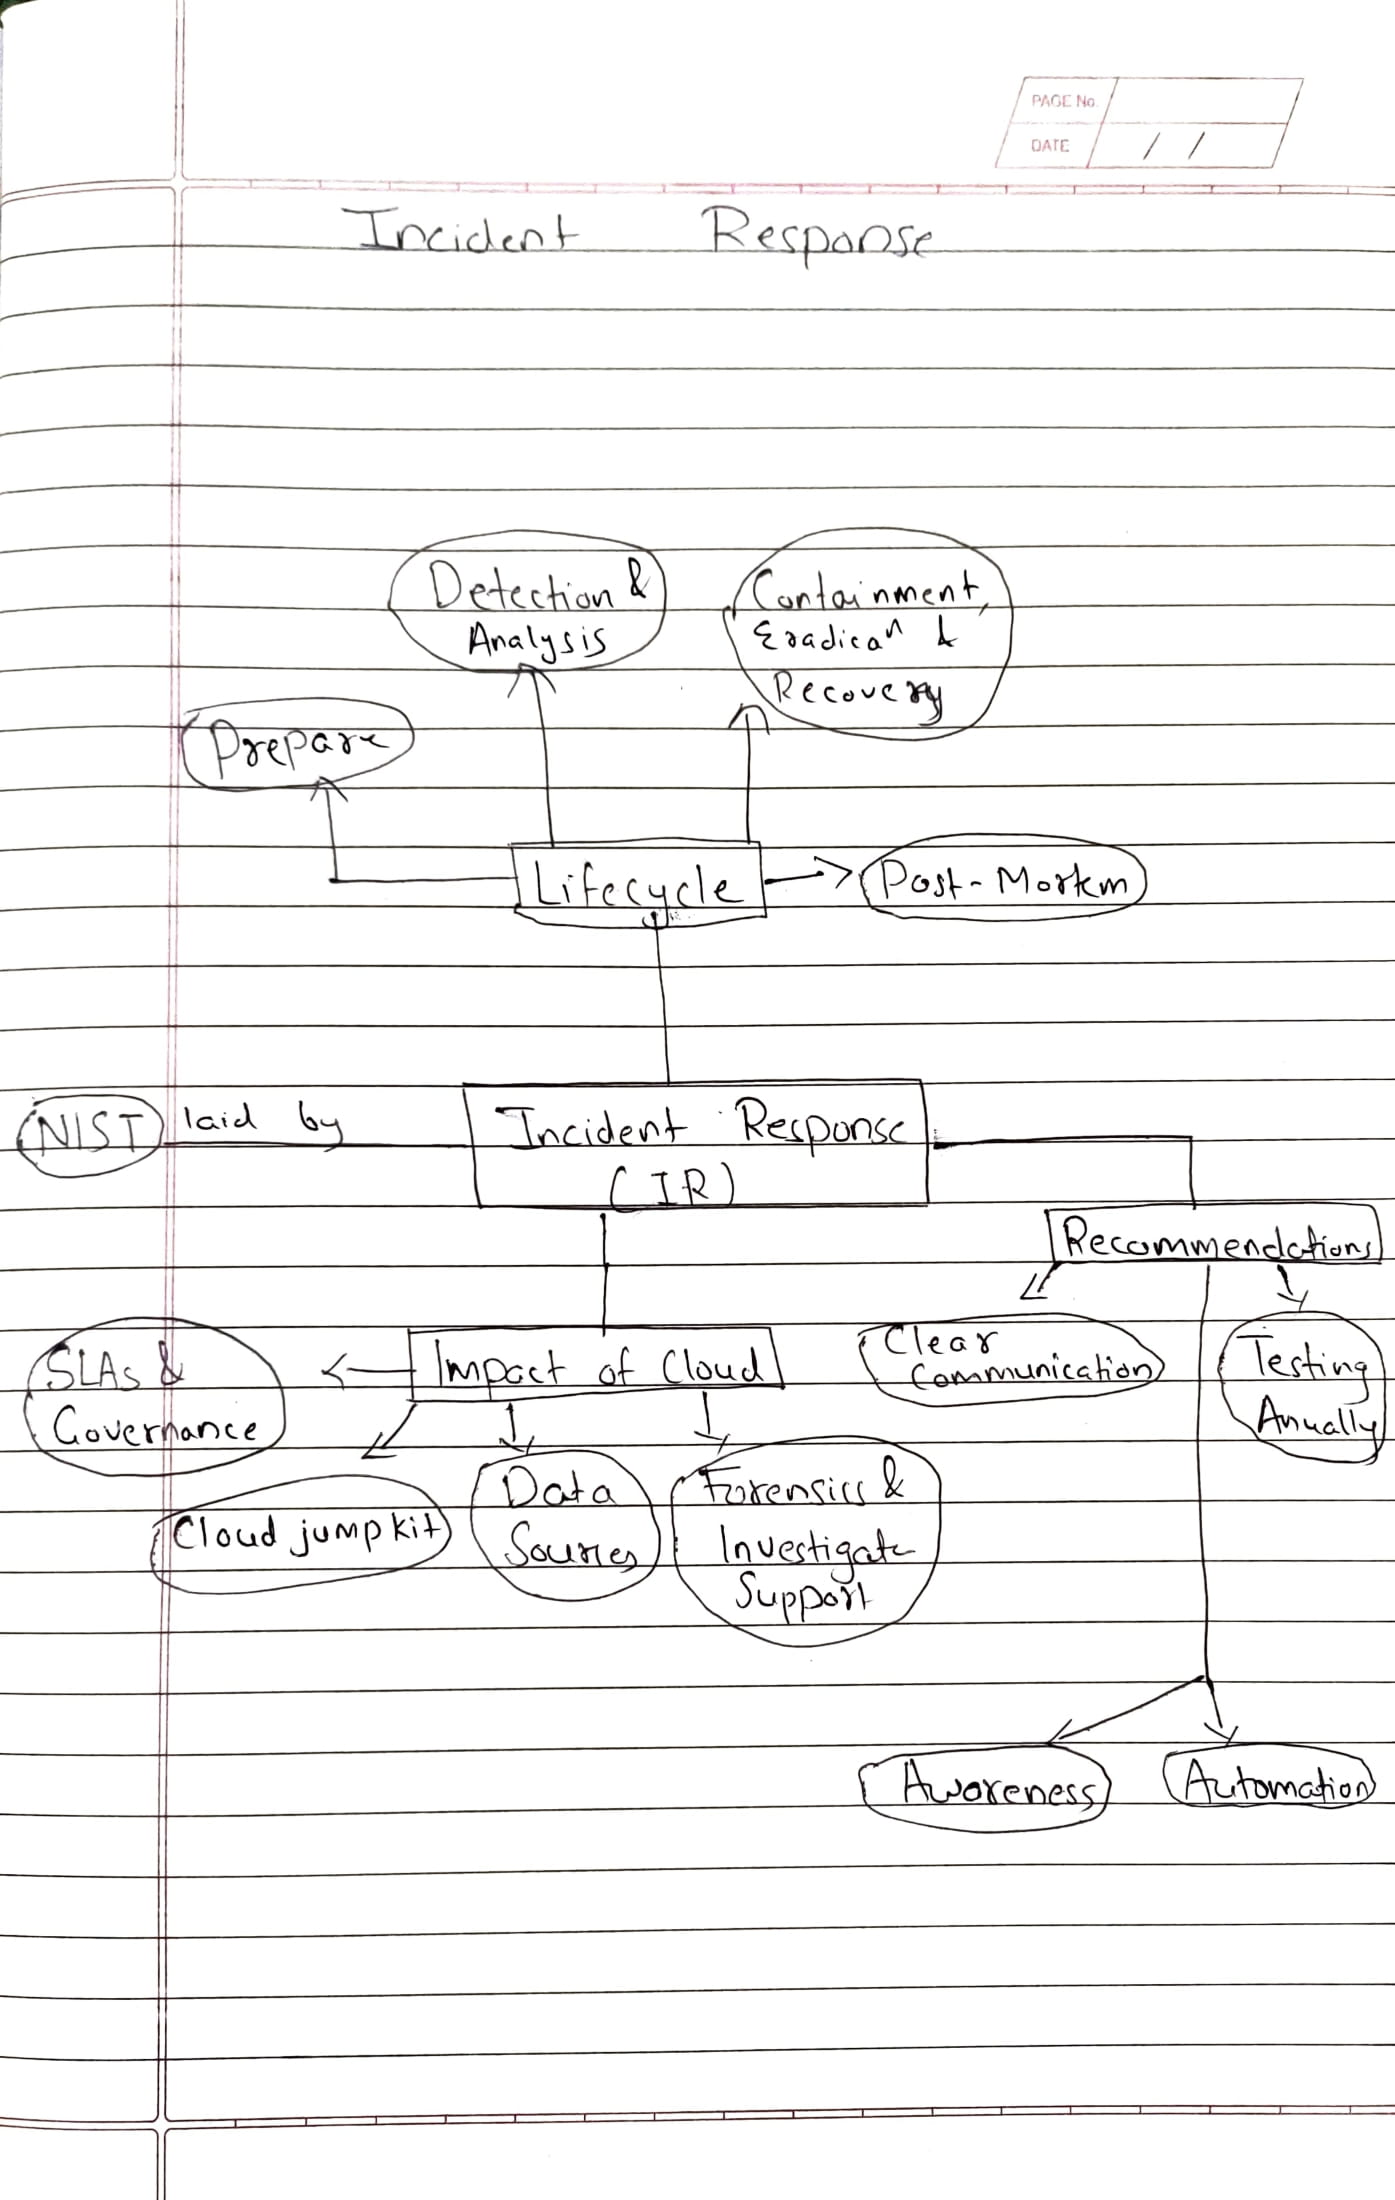 PAGE No.
DATE / /
Incident Response
Detection &
Analysis
Containment,
Eradican &
Recovery
Prepare
Lifecycle
Post-Mortem
NIST laid by
Incident Response
(IR)
Recommendations
Clear
Communication
Testing
Anually
Impact of Cloud
SLAs &
Governance
Cloud jump kit
Data
Sources
Forensics &
Investigate
Support
Awareness
Automation